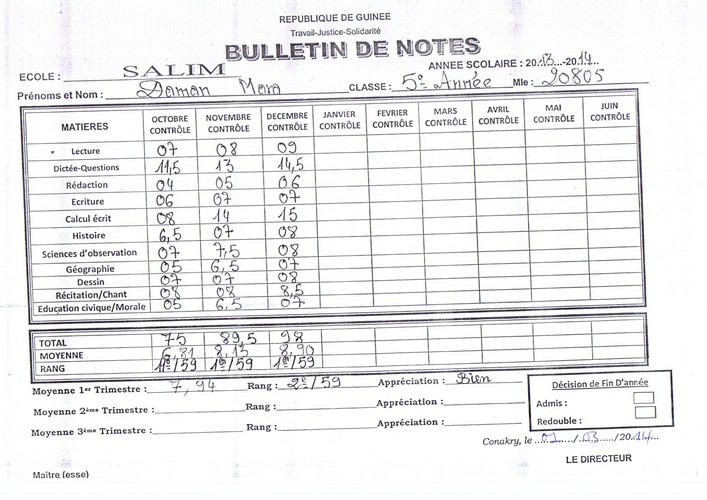 REPUBLIQUE DE GUINEE
Travail-Justice-Solidarité
BULLETIN DE NOTES
ECOLE : SALIM ANNEE SCOLAIRE : 2013-2014
Prénoms et Nom : Daman Mara CLASSE : 5e Année Mle : 20805
MATIERES OCTOBRE CONTRÔLE NOVEMBRE CONTRÔLE DECEMBRE CONTRÔLE JANVIER CONTRÔLE FEVRIER CONTRÔLE MARS CONTRÔLE AVRIL CONTRÔLE MAI CONTRÔLE JUIN CONTRÔLE
Lecture 07 08 09
Dictée-Questions 11,5 13 14,5
Rédaction 04 05 06
Ecriture 06 07 07
Calcul écrit 08 14 15
Histoire 6,5 07 08
Sciences d'observation 07 7,5 08
Géographie 05 6,5 07
Dessin 07 07 08
Récitation/Chant 08 08 8,5
Education civique/Morale 05 6,5 07
TOTAL 75 89,5 98
MOYENNE 6,81 8,13 8,90
RANG 11e/59 1e/59 1e/59
Moyenne 1er Trimestre : 7,94 Rang : 2e/59 Appréciation : Bien
Moyenne 2ème Trimestre : Rang : Appréciation :
Moyenne 3ème Trimestre : Rang : Appréciation :
Décision de Fin D'année
Admis :
Redouble :
Conakry, le /03/2014
LE DIRECTEUR
Maître (esse)